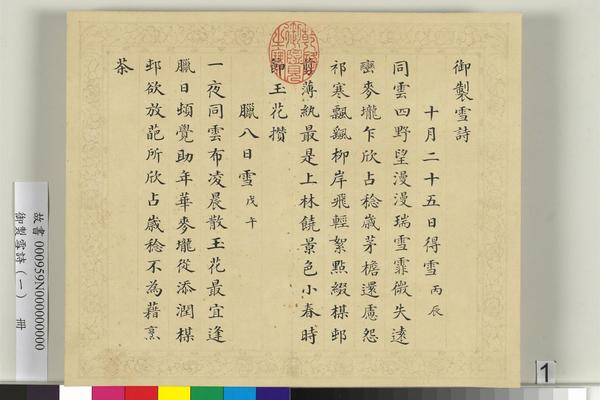 御製雪詩
十月二十五日得雪丙辰
同雲四野望漫漫瑞雪霏微失遠
巒麥壠乍欣占稔歲茅檐還慮怨
祁寒飄飄柳岸飛輕絮點綴楳邨
薄紈最是上林饒景色小春時
節玉花攢
臘八日雪戊午
一夜同雲布凌晨散玉花最宜逢
臘日頓覺助年華麥壠從添潤楳
邨欲放葩所欣占歲稔不為藉烹
茶
故書 000959N000000000
御製雪詩(一) 冊
1